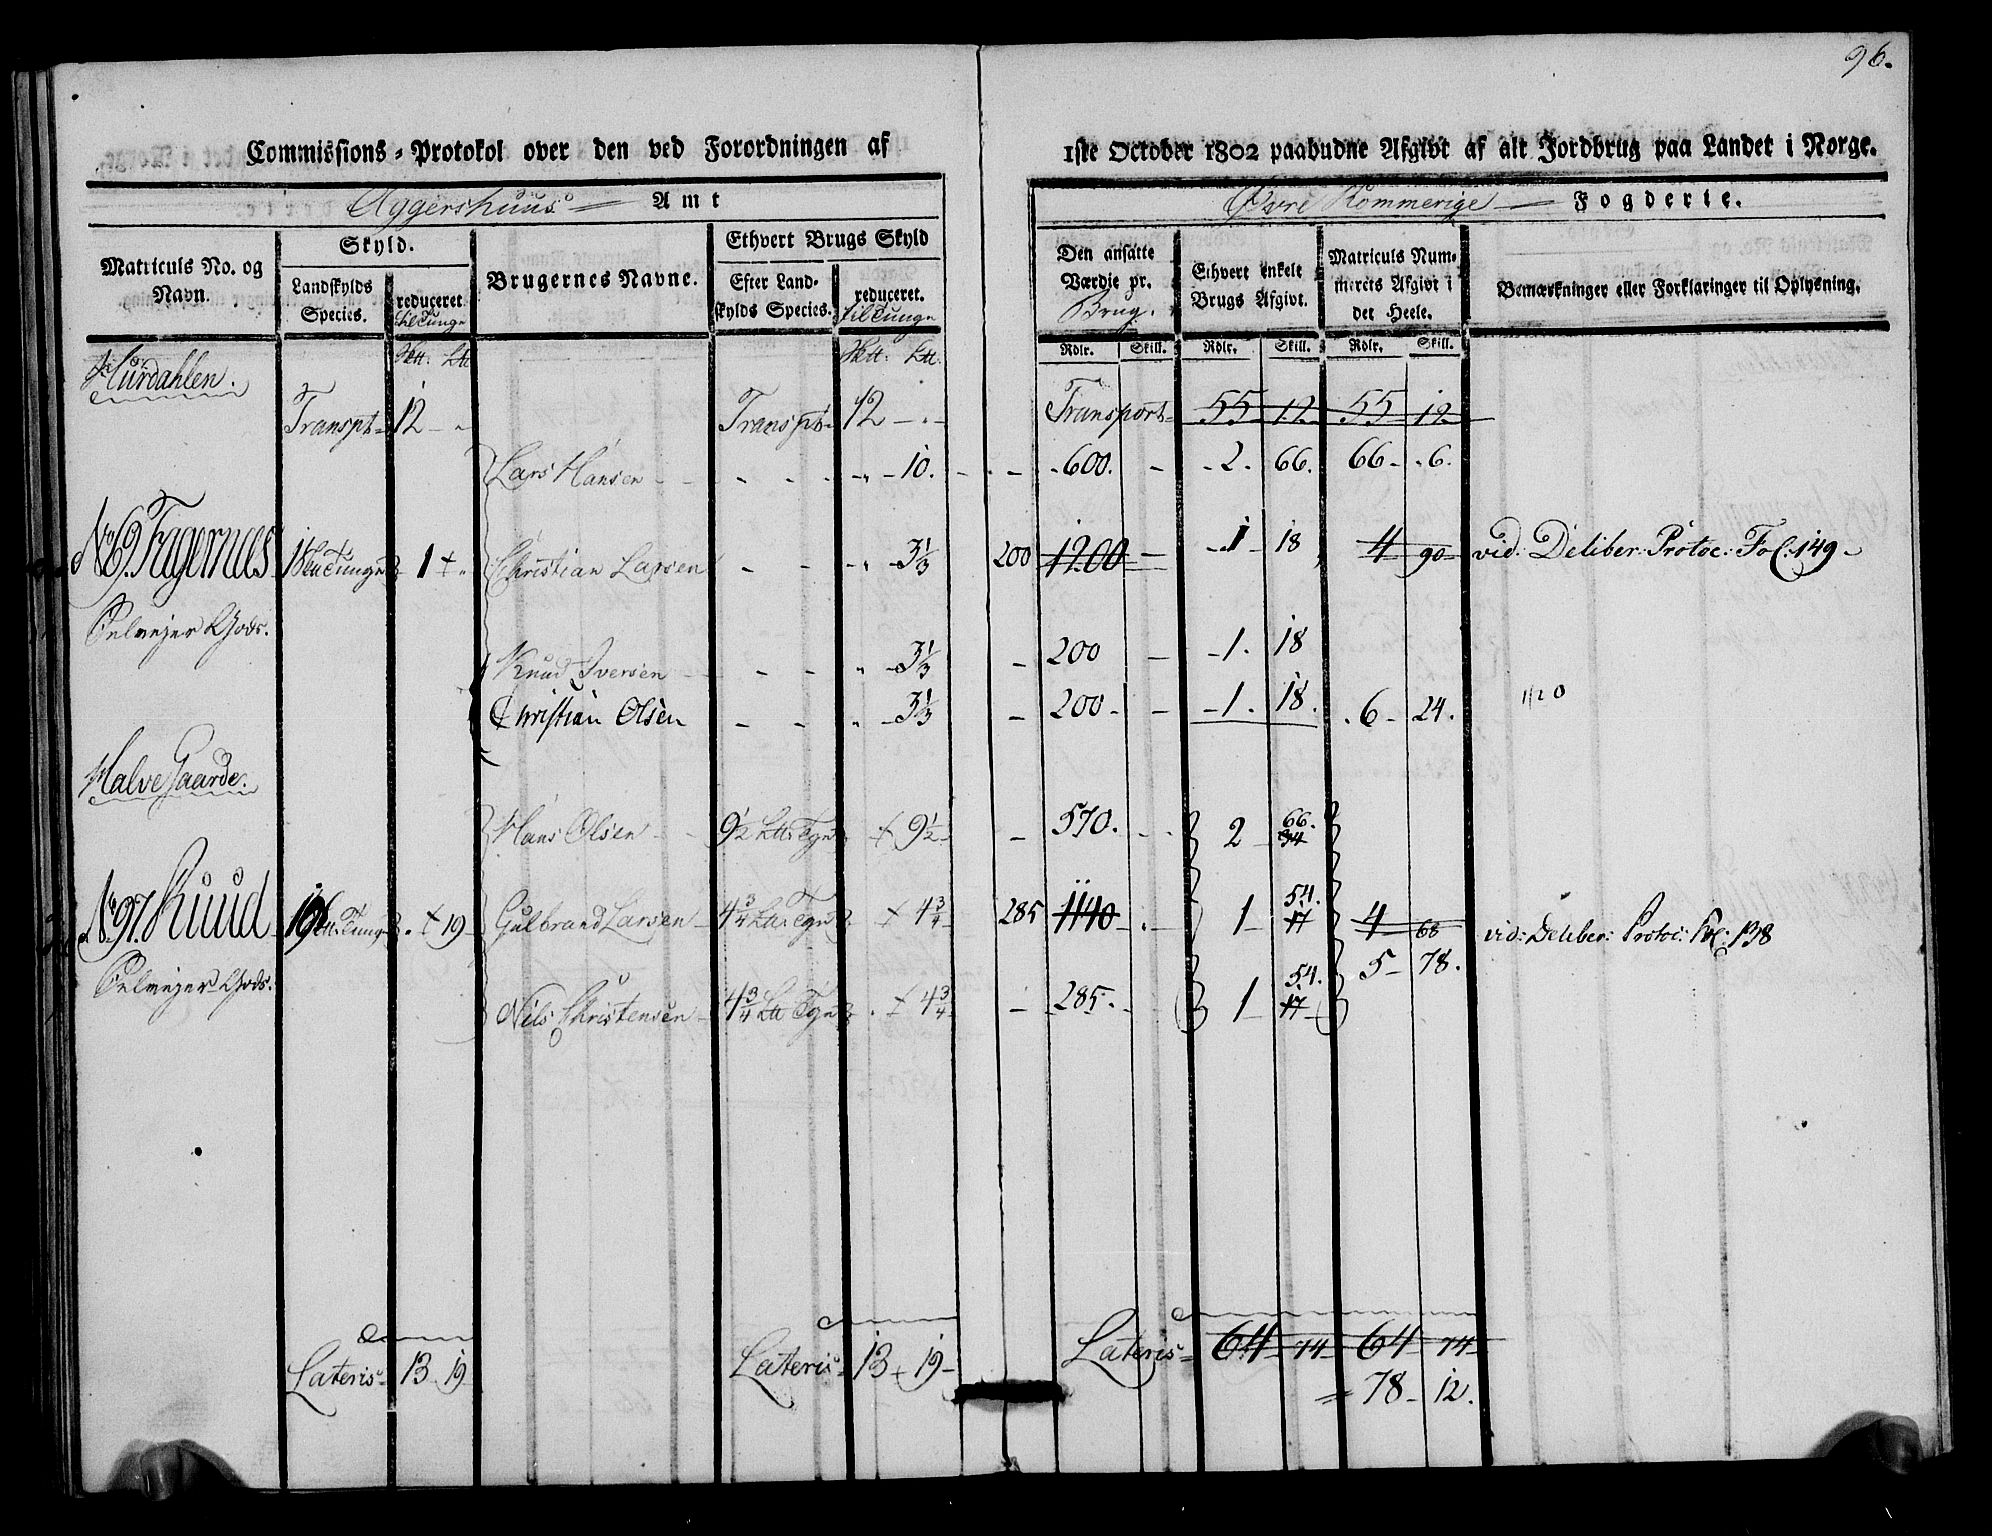 96.
Commissions-Protokol over den ved Forordningen af 1ste October 1802 paabudne Afgivt af alt Jordbrug paa Landet i Norge.
Aggershuus Amt Øvre Rommerige Fogderie.
Matriculs No. og Navn.
Skyld.
Landskylds Species.
reduceret. til Tunge
Brugernes Navne.
Ethvert Brugs Skyld
Efter Landskylds Species.
reduceret. til Tunge
Den ansatte Værdie pr. Brug.
Ethvert enkelt Brugs Afgivt.
Matriculs Nummerets Afgivt i det Heele.
Bemærkninger eller Forklaringer til Oplysning.
Rdlr. Skill. Rdlr. Skill. Rdlr. Skill.
Hurdahlen.
Transpt 12 - Transpt 12 - Transport 55 12 55 12
Lars Hansen - 10. - 600. - 2. 66. 66 - 6.
No 69. Fagernæs 1 Tunge 1 Christian Larsen - 3 1/3 200 1200 - 1 - 18 4 90 vid: Deliber: Protoc: Fol: 149
Selvejer Gods.
Knud Iversen - 3 1/3 - 200 - 1. 18
Christian Olsen - 3 1/3 - 200 - 1. 18. 6 - 24. 1120
Halve Gaarde.
Hans Olsen 9 1/2 9 1/2 - 570. 2 66. 34
No 97. Ruud 19 Tunge 19 Gulbrand Larsen 4 3/4 4 3/4 285 1140 1 54. 17 4 68 vid: Deliber: Protoc: Fol: 138
5 - 78.
Selvejer Gods.
Nils Christensen 4 3/4 4 3/4 - 285. 1 54. 17
Lateris 13 19 Lateris 13 19 Lateris 64 74 64 74
78 - 12.